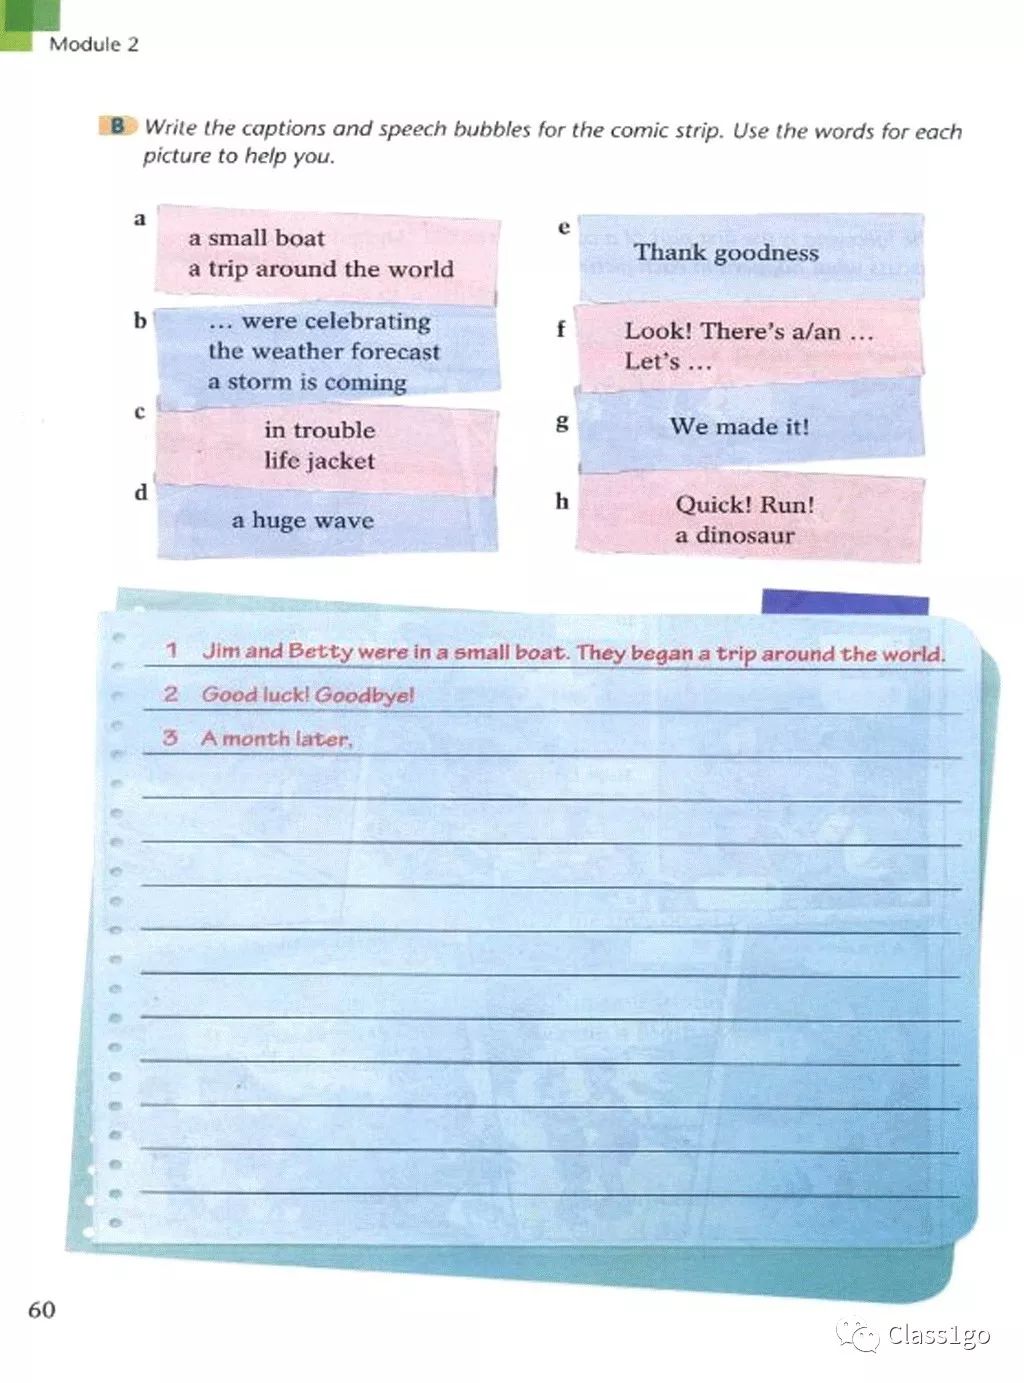 Module 2
B Write the captions and speech bubbles for the comic strip. Use the words for each
picture to help you.
a
a small boat
a trip around the world
b
... were celebrating
the weather forecast
a storm is coming
c
in trouble
life jacket
d
a huge wave
e
Thank goodness
f
Look! There's a/an ...
Let's ...
g
We made it!
h
Quick! Run!
a dinosaur
1 Jim and Betty were in a small boat. They began a trip around the world.
2 Good luck! Goodbye!
3 A month later,
60
Class1go